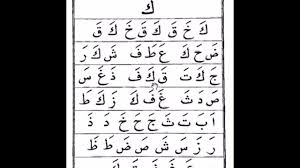 ك
كَ خَ قَ كَ قَ خَ كَ
ضَحَكَ عَطَفَ شَكَرَ
جَكَتَ قَكَفَ ذَغَسَ
صَدَثَ غَفَكَ زَكَطَ
اَ بَ تَ ثَ جَ حَ خَ دَ ذَ
رَ زَ سَ شَ صَ ضَ طَ ظَ